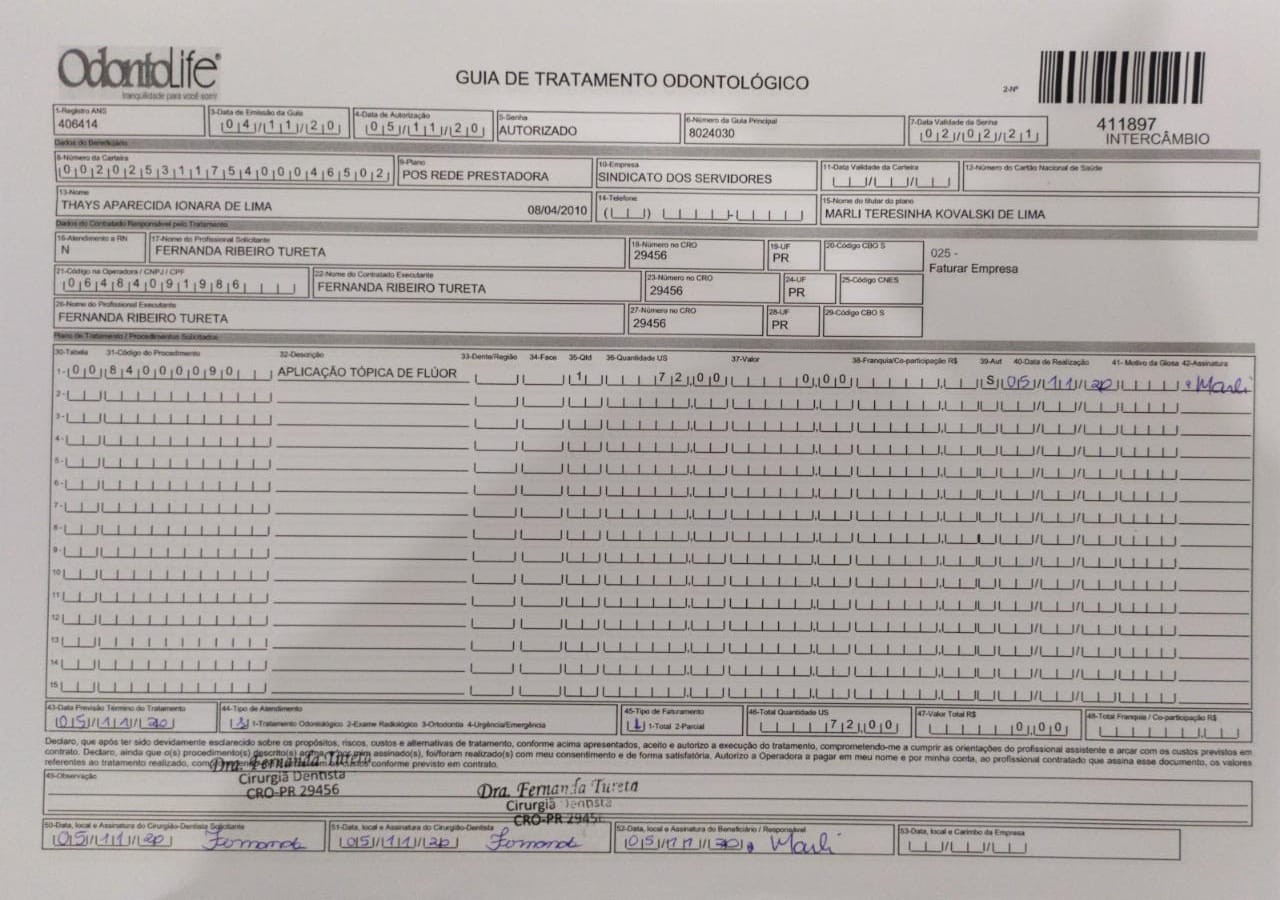 OdontoLife
tranquilidade para você sorrir
GUIA DE TRATAMENTO ODONTOLÓGICO
2-Nº
411897
INTERCÂMBIO
1-Registro ANS
406414
3-Data de Emissão da Guia
04/11/20
4-Data de Autorização
05/11/20
5-Senha
AUTORIZADO
6-Número da Guia Principal
8024030
7-Data Validade da Senha
02/02/21
Dados do Beneficiário
8-Número da Carteira
00202531175400046502
9-Plano
POS REDE PRESTADORA
10-Empresa
SINDICATO DOS SERVIDORES
11-Data Validade da Carteira
12-Número do Cartão Nacional de Saúde
13-Nome
THAYS APARECIDA IONARA DE LIMA 08/04/2010
14-Telefone
15-Nome do titular do plano
MARLI TERESINHA KOVALSKI DE LIMA
Dados do Contratado Responsável pelo Tratamento
16-Atendimento a RN
N
17-Nome do Profissional Solicitante
FERNANDA RIBEIRO TURETA
18-Número no CRO
29456
19-UF
PR
20-Código CBO S
025 -
Faturar Empresa
21-Código na Operadora / CNPJ / CPF
06484091986
22-Nome do Contratado Executante
FERNANDA RIBEIRO TURETA
23-Número no CRO
29456
24-UF
PR
25-Código CNES
26-Nome do Profissional Executante
FERNANDA RIBEIRO TURETA
27-Número no CRO
29456
28-UF
PR
29-Código CBO S
Plano de Tratamento / Procedimentos Solicitados
30-Tabela 31-Código do Procedimento 32-Descrição 33-Dente/Região 34-Face 35-Qtd 36-Quantidade US 37-Valor 38-Franquia/Co-participação R$ 39-Aut 40-Data de Realização 41- Motivo da Glosa 42-Assinatura
1- 00 84000090 APLICAÇÃO TÓPICA DE FLÚOR 1 72,00 0,00 S 05/11/20 Marli
2-
3-
4-
5-
6-
7-
8-
9-
10
11
12
13
14
15
43-Data Previsão Término do Tratamento
05/11/20
44-Tipo de Atendimento
1-Tratamento Odontológico 2-Exame Radiológico 3-Ortodontia 4-Urgência/Emergência
45-Tipo de Faturamento
1 1-Total 2-Parcial
46-Total Quantidade US
72,00
47-Valor Total R$
0,00
48-Total Franquia / Co-participação R$
Declaro, que após ter sido devidamente esclarecido sobre os propósitos, riscos, custos e alternativas de tratamento, conforme acima apresentados, aceito e autorizo a execução do tratamento, comprometendo-me a cumprir as orientações do profissional assistente e arcar com os custos previstos em
contrato. Declaro, ainda que o(s) procedimento(s) descrito(s) acima, por mim assinado(s), foi/foram realizado(s) com meu consentimento e de forma satisfatória. Autorizo a Operadora a pagar em meu nome e por minha conta, ao profissional contratado que assina esse documento, os valores
referentes ao tratamento realizado, conforme previsto em contrato.
49-Observação
Dra. Fernanda Tureta
Cirurgiã Dentista
CRO-PR 29456
Dra. Fernanda Tureta
Cirurgiã Dentista
CRO-PR 29456
50-Data, local e Assinatura do Cirurgião-Dentista Solicitante
05/11/20 Fernanda
51-Data, local e Assinatura do Cirurgião-Dentista
05/11/20 Fernanda
52-Data, local e Assinatura do Beneficiário / Responsável
05/11/20 Marli
53-Data, local e Carimbo da Empresa